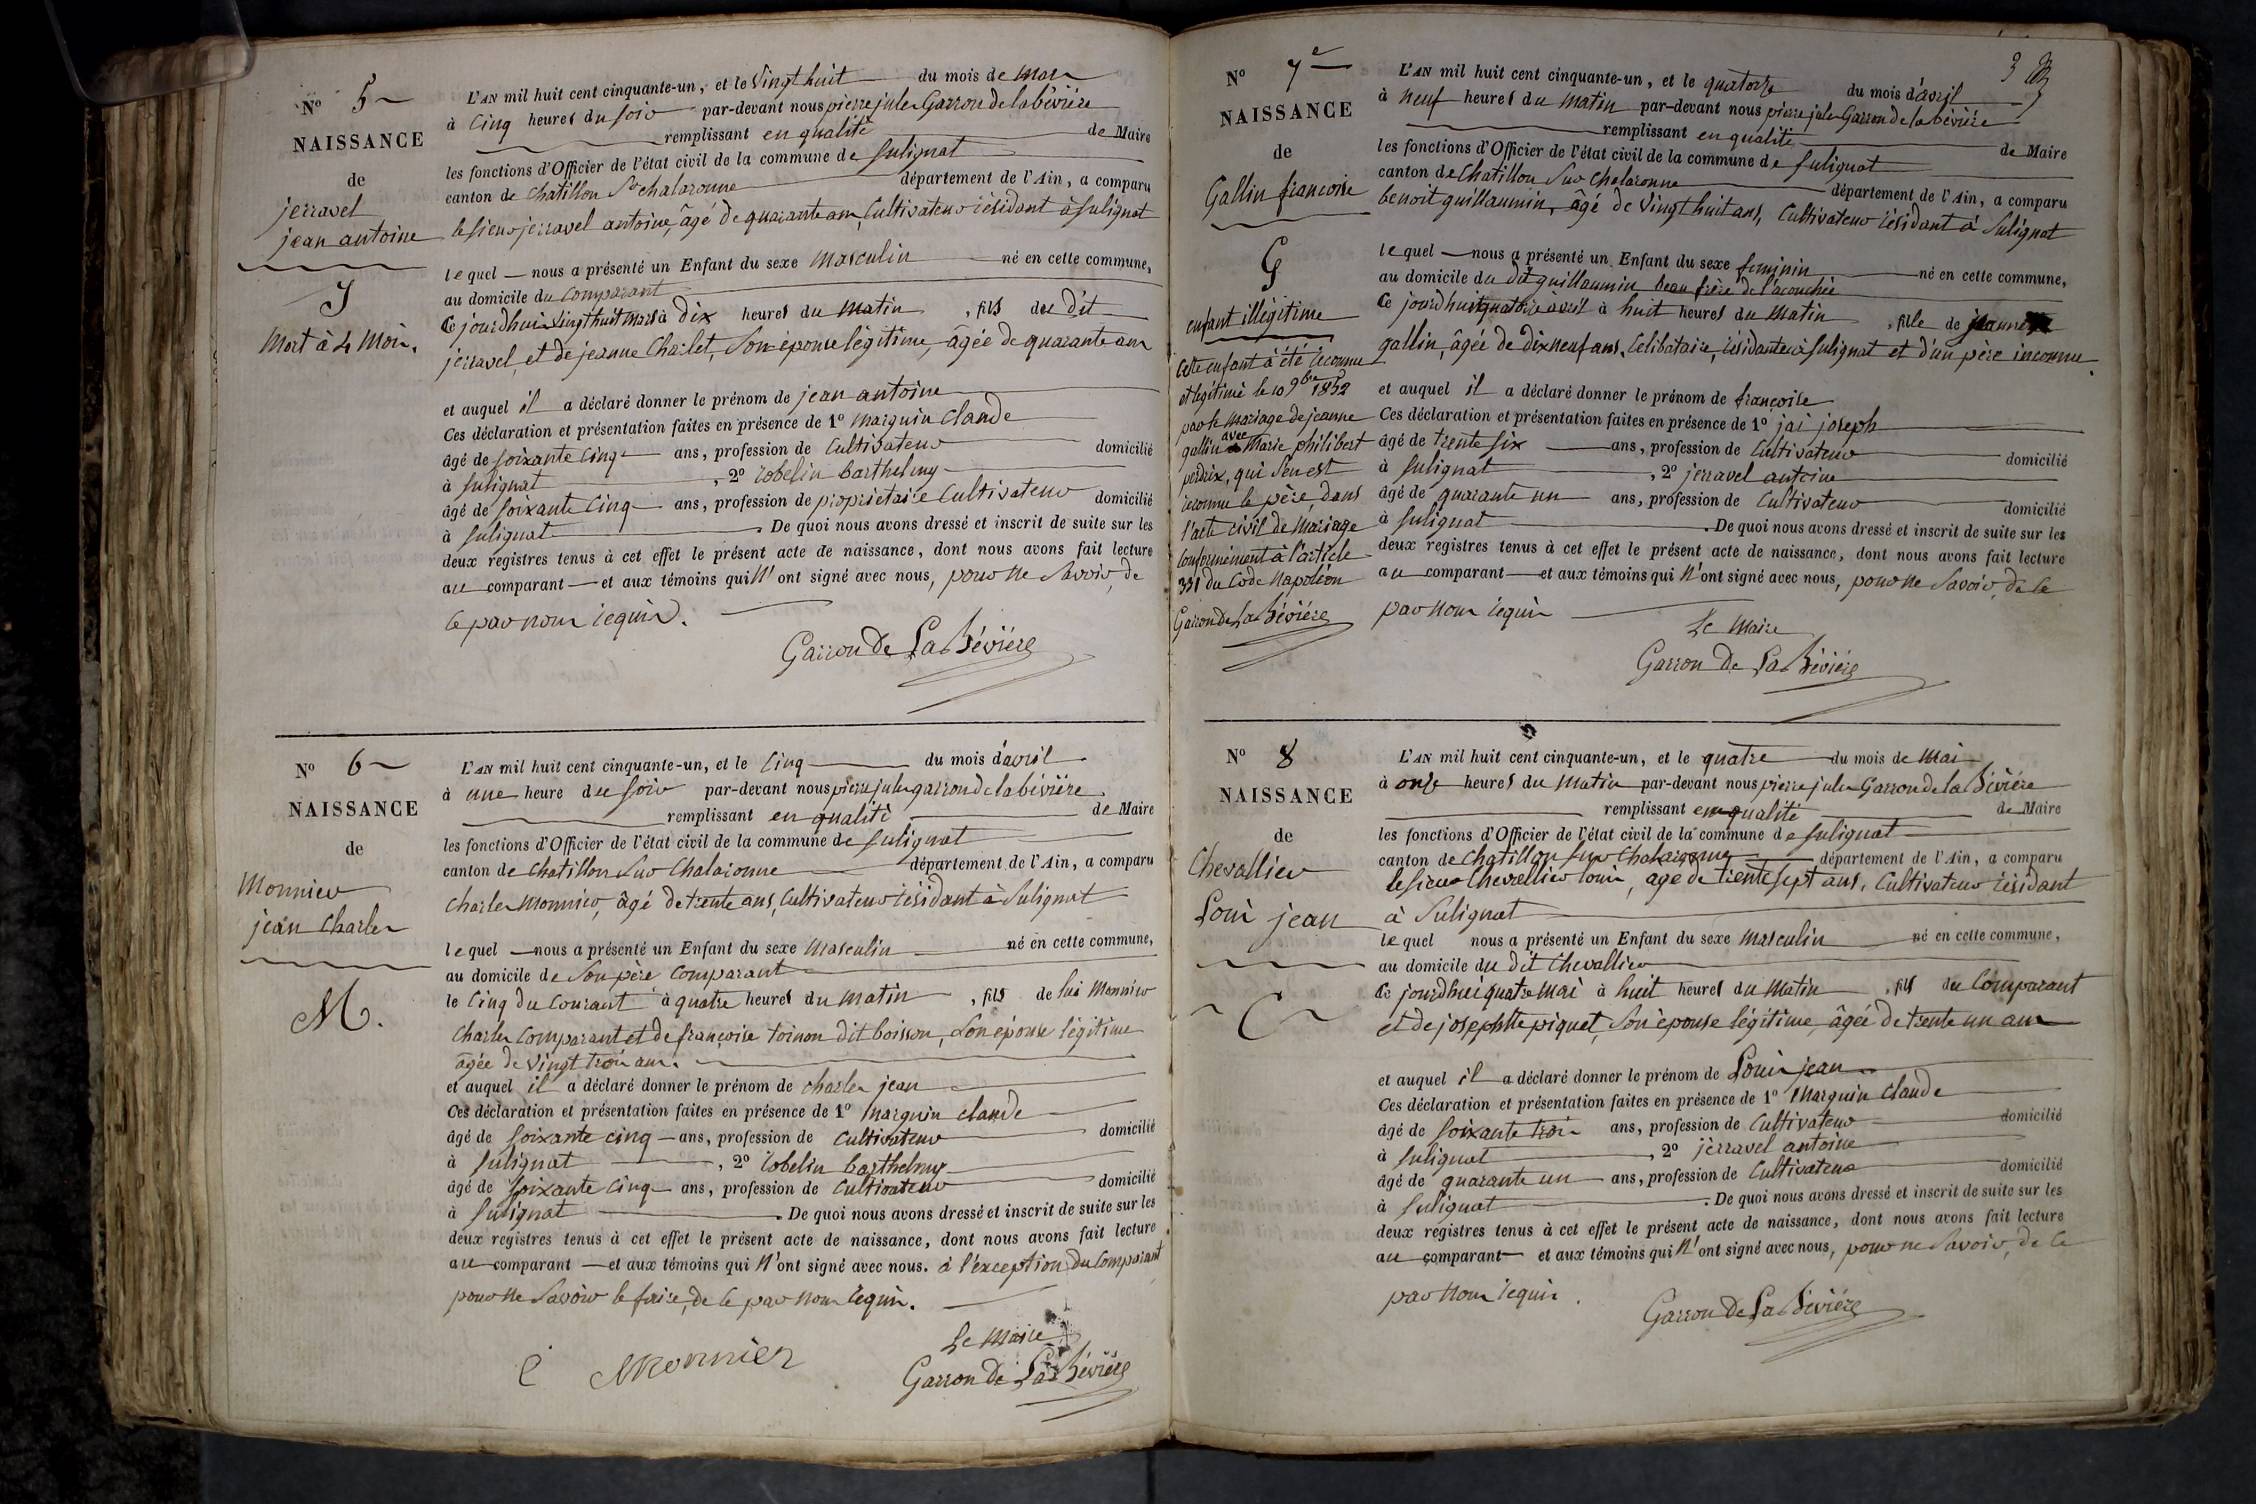 N° 5
NAISSANCE
de
jerravel
jean antoine
J
Mort à 4 Mois.
L'AN mil huit cent cinquante-un, et le Vingt huit du mois de Mars
à Cinq heures du Soir par-devant nous pierre jules Garron de la bévière
remplissant en qualité de Maire
les fonctions d'Officier de l'état civil de la commune de Sulignat
canton de Chatillon Sr chalaronne département de l'Ain, a comparu
le Sieur jerravel antoine, âgé de quarante ans, Cultivateur résidant à Sulignat
lequel nous a présenté un Enfant du sexe Masculin né en cette commune,
au domicile du Comparant
Ce jourdhui vingt huit Mars à dix heures du Matin, fils du dit
jerravel, et de jeanne Charlet, Son épouse légitime, âgée de quarante ans
et auquel il a déclaré donner le prénom de jean antoine
Ces déclaration et présentation faites en présence de 1° Marguin Claude
âgé de Soixante Cinq ans, profession de Cultivateur domicilié
à Sulignat, 2° robelin barthelmy
âgé de Soixante Cinq ans, profession de propriétaire Cultivateur domicilié
à Sulignat. De quoi nous avons dressé et inscrit de suite sur les
deux registres tenus à cet effet le présent acte de naissance, dont nous avons fait lecture
au comparant et aux témoins qui N'ont signé avec nous, pour ne Savoir, de
ce par nous requis.
Garron De La Bévière
N° 6
NAISSANCE
de
Monnier
jean Charles
M.
L'AN mil huit cent cinquante-un, et le Cinq du mois d'avril
à une heure du Soir par-devant nous pierre jules garron de la bévière
remplissant en qualité de Maire
les fonctions d'Officier de l'état civil de la commune de Sulignat
canton de Chatillon Sur Chalaronne département de l'Ain, a comparu
Charles Monnier, âgé de trente ans, Cultivateur résidant à Sulignat
lequel nous a présenté un Enfant du sexe Masculin né en cette commune,
au domicile de Son père Comparant
le Cinq du Courant à quatre heures du Matin, fils de lui Monnier
Charles Comparant et de françoise toinon dit boisson, Son épouse légitime
âgée de Vingt trois ans.
et auquel il a déclaré donner le prénom de charles jean
Ces déclaration et présentation faites en présence de 1° Marguin claude
âgé de Soixante cinq ans, profession de Cultivateur domicilié
à Sulignat, 2° robelin barthelmy
âgé de Soixante Cinq ans, profession de Cultivateur domicilié
à Sulignat. De quoi nous avons dressé et inscrit de suite sur les
deux registres tenus à cet effet le présent acte de naissance, dont nous avons fait lecture
au comparant et aux témoins qui N'ont signé avec nous. à l'exception du Comparant
pour ne Savoir le faire, de ce par nous requis.
Le Maire
C Monnier
Garron De La Bévière
3
N° 7e
NAISSANCE
de
Gallin françoise
G
enfant illégitime
Cette enfant a été reconnue
et légitimé le 10 9bre 1852
par le Mariage de jeanne
gallin avec Marie philibert
perdrix, qui S'en est
reconnu le père, dans
l'acte civil de Mariage
Conformément à l'article
331 du Code Napoléon
Garron De La Bévière
L'AN mil huit cent cinquante-un, et le quatorze du mois d'avril
à Neuf heures du Matin par-devant nous pierre jules Garron de la bévière
remplissant en qualité de Maire
les fonctions d'Officier de l'état civil de la commune de Sulignat
canton de Chatillon Sur Chalaronne département de l'Ain, a comparu
benoit guillaumin, âgé de Vingt huit ans, Cultivateur résidant à Sulignat
lequel nous a présenté un Enfant du sexe feminin né en cette commune,
au domicile du dit guillaumin beau frère de l'acouchée
Ce jourdhui quatorze avril à huit heures du Matin, fille de jeanne
gallin, âgée de dix neuf ans, Celibataire, résidante à Sulignat et d'un père inconnu.
et auquel il a déclaré donner le prénom de françoise
Ces déclaration et présentation faites en présence de 1° jai joseph
âgé de trente six ans, profession de Cultivateur domicilié
à Sulignat, 2° jerravel antoine
âgé de quarante un ans, profession de Cultivateur domicilié
à Sulignat. De quoi nous avons dressé et inscrit de suite sur les
deux registres tenus à cet effet le présent acte de naissance, dont nous avons fait lecture
au comparant et aux témoins qui N'ont signé avec nous, pour ne Savoir, de ce
par nous requis
Le Maire
Garron De La Bévière
N° 8
NAISSANCE
de
Chevallier
Louis jean
C
L'AN mil huit cent cinquante-un, et le quatre du mois de Mai
à onze heures du Matin par-devant nous pierre jules Garron de la Bévière
remplissant en qualité de Maire
les fonctions d'Officier de l'état civil de la commune de Sulignat
canton de Chatillon Sur Chalaronne département de l'Ain, a comparu
le Sieur Chevallier louis, âgé de trente sept ans, Cultivateur résidant
à Sulignat
lequel nous a présenté un Enfant du sexe Masculin né en cette commune,
au domicile du dit Chevallier
Ce jourdhui quatre Mai à huit heures du Matin, fils du Comparant
et de josephtte piquet, Son épouse légitime, âgée de trente un ans
et auquel il a déclaré donner le prénom de Louis jean
Ces déclaration et présentation faites en présence de 1° Marguin Claude
âgé de Soixante trois ans, profession de Cultivateur domicilié
à Sulignat, 2° jerravel antoine
âgé de quarante un ans, profession de Cultivateur domicilié
à Sulignat. De quoi nous avons dressé et inscrit de suite sur les
deux registres tenus à cet effet le présent acte de naissance, dont nous avons fait lecture
au comparant et aux témoins qui N'ont signé avec nous, pour ne Savoir, de ce
par nous requis.
Garron De La Bévière